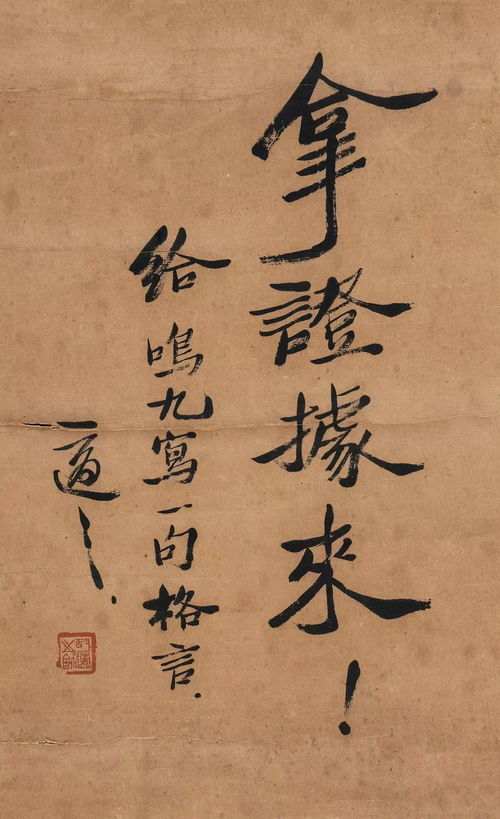 拿證據來！
給鳴九寫一句格言.
適之.